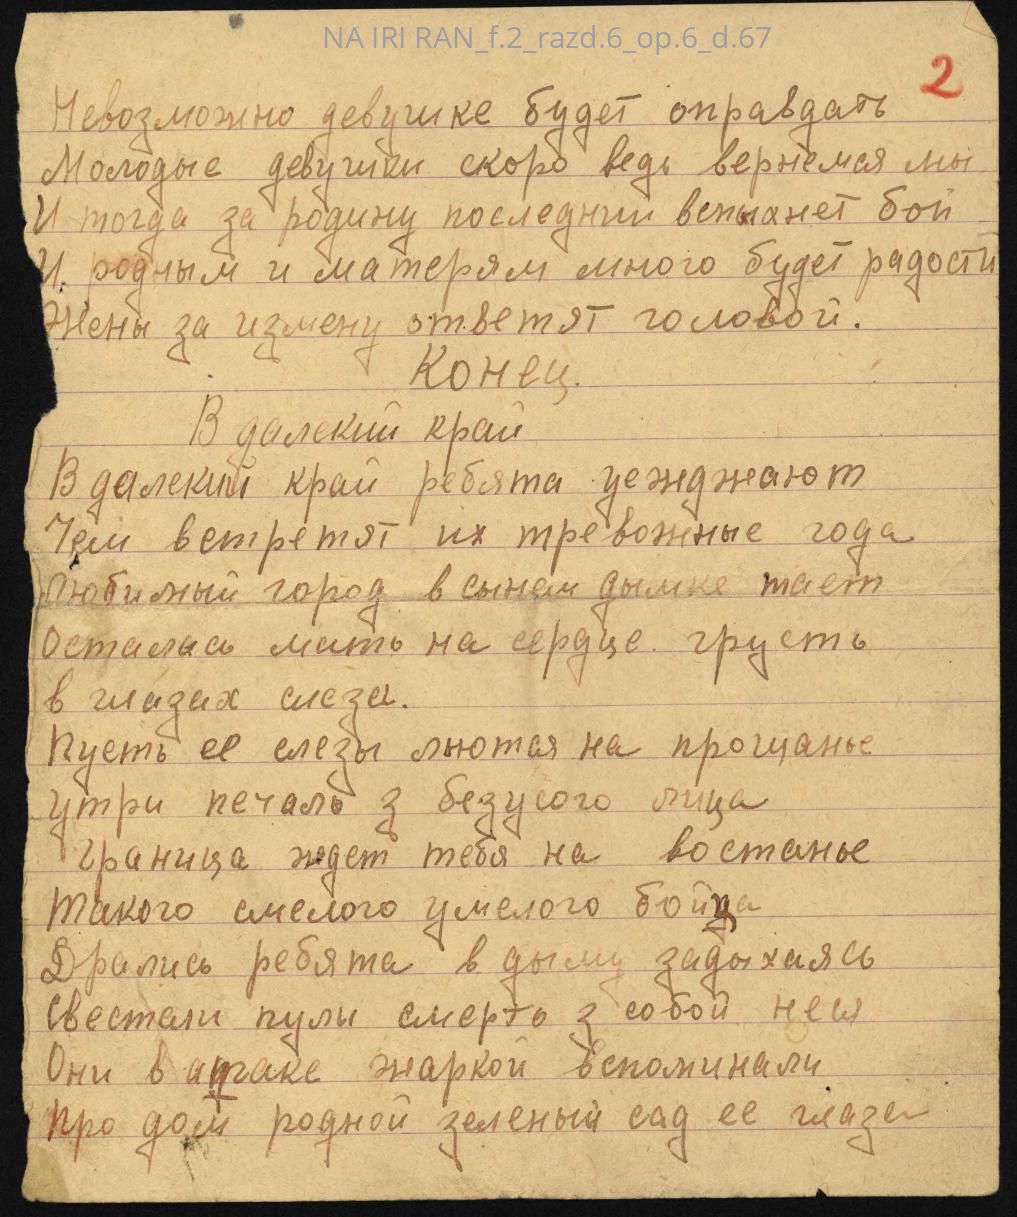 NA IRI RAN_f.2_razd.6_op.6_d.67
2
Невозможно девушке будет оправдать
Молодые девушки скоро ведь вернемся мы
И тогда за родину последнии вспыхнет бой
И родным и матерям много будет радости
Жены за измену ответят головой.
Конец.
В далекий край
В далекий край ребята уежджают
Чем встретят их тревожные года
Любимый город в сынем дымке тает
Осталась мать на сердце грусть
в глазах слеза.
Пусть ее слезы льются на прощанье
утри печаль з безусого лица
Граница ждет тебя на востанье
Такого смелого умелого бойца
Дрались ребята в дыму задыхаясь
Свестели пулы смерть з собой неся
Они в атаке жаркой вспоминали
про дом родной зеленый сад ее глаза